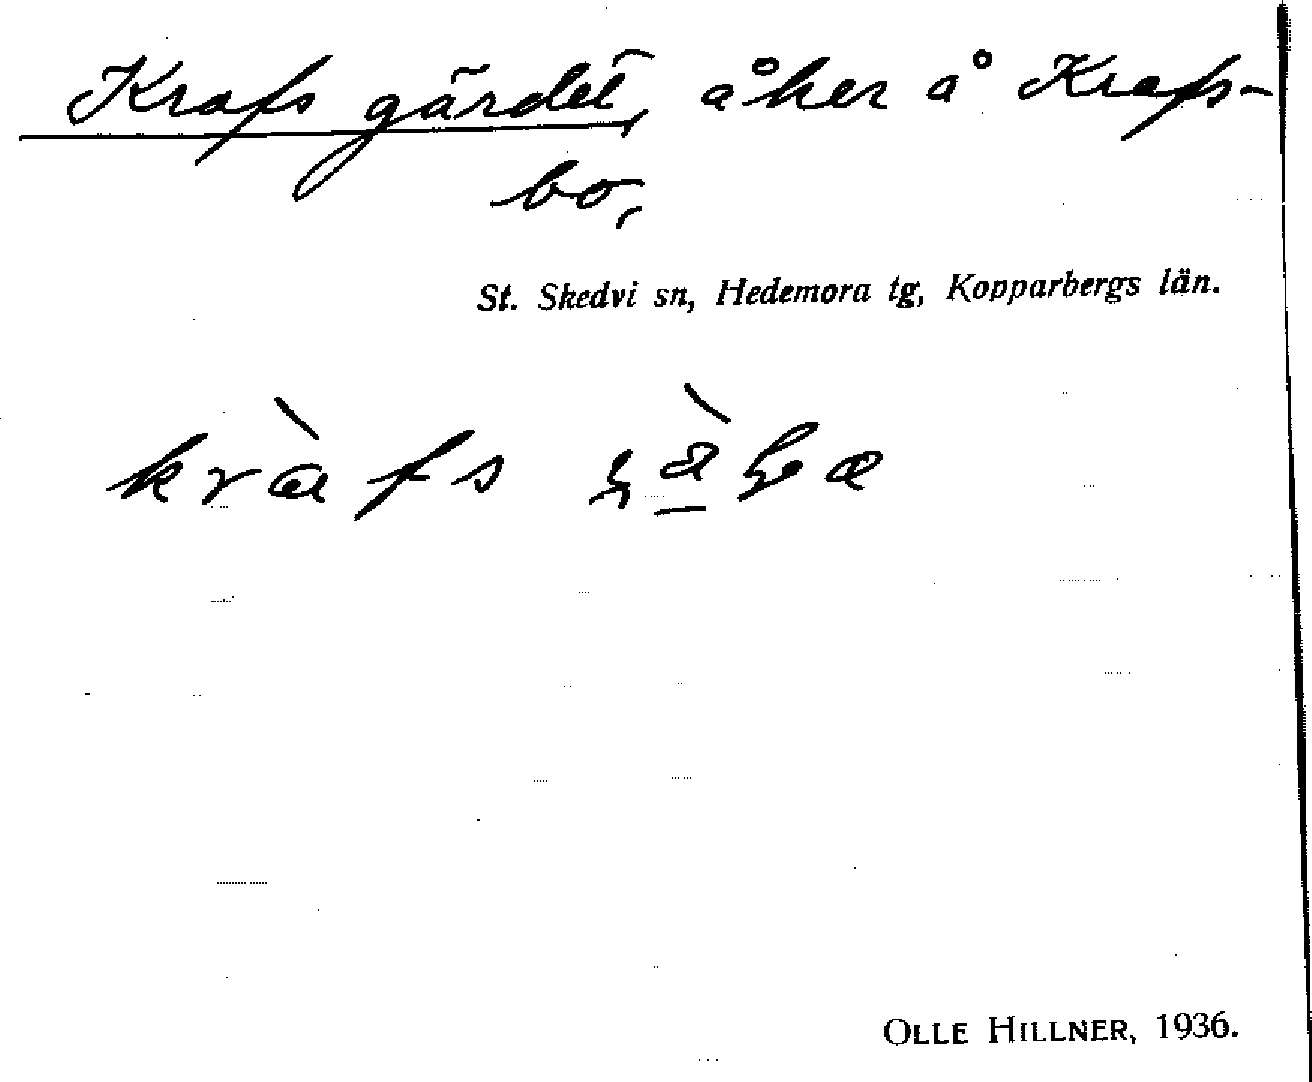 Krafs gärdet, åker å Krafs-
bo,
St. Skedvi sn, Hedemora tg, Kopparbergs län.
kràfs
OLLE HILLNER, 1936.